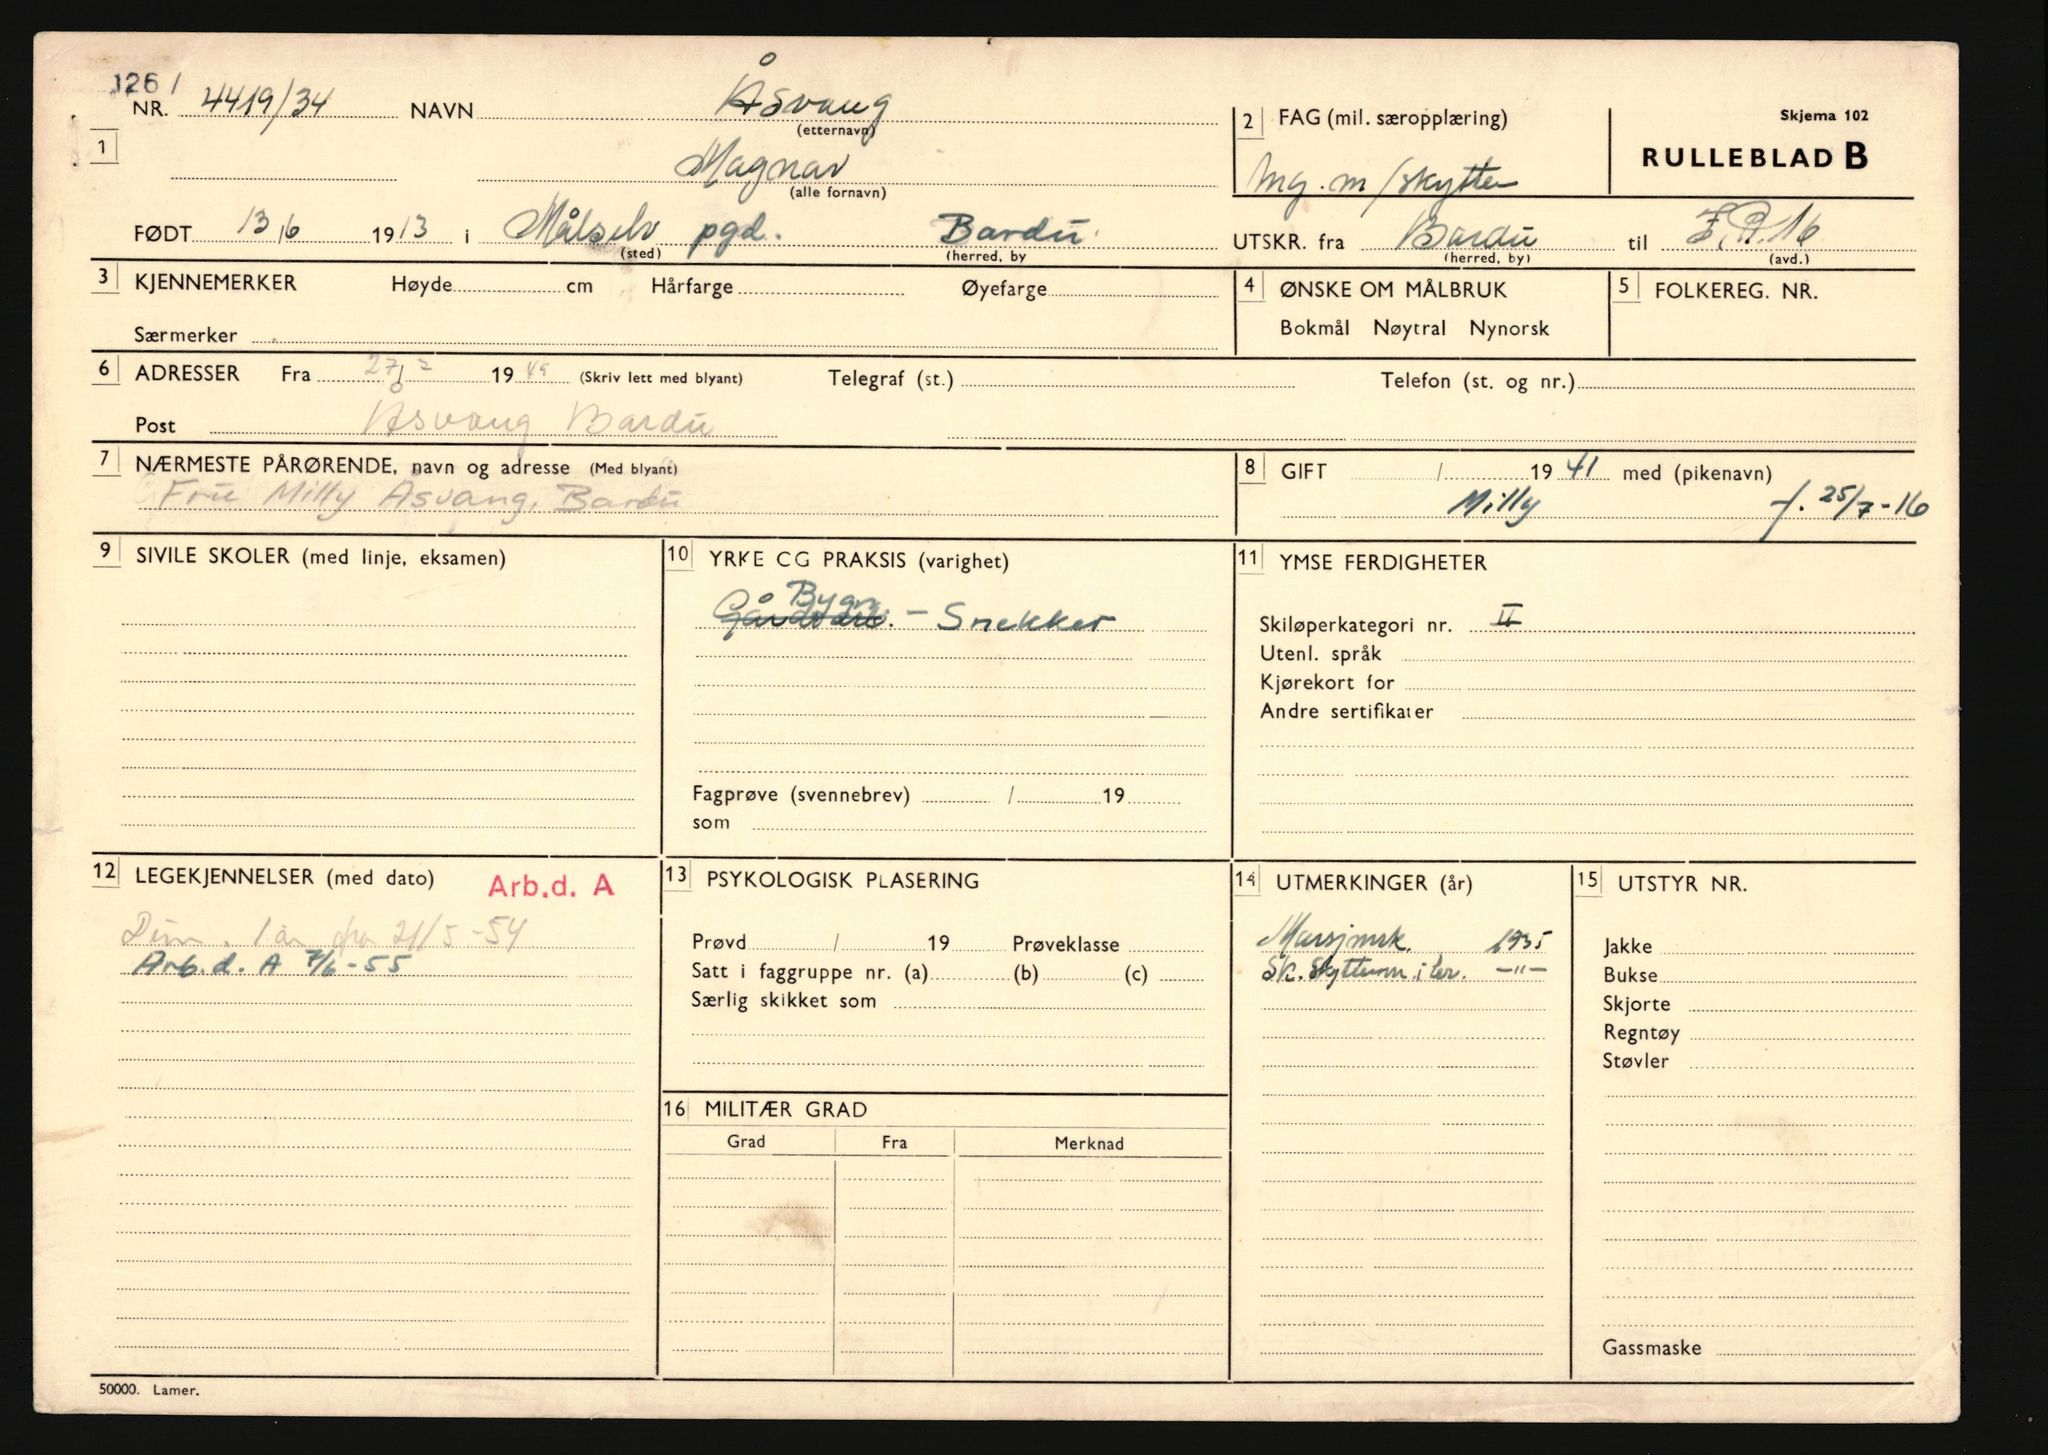 1261
NR. 4419/34 NAVN Åsvang
(etternavn)
1
Magnar
(alle fornavn)
FØDT 13/6 1913 i Målselv pgd. Bardu
(sted) (herred, by
2 FAG (mil. særopplæring)
Mg. m/skytter
Skjema 102
RULLEBLAD B
UTSKR. fra Bardu til I.R. 16
(herred, by) (avd.)
3 KJENNEMERKER Høyde cm Hårfarge Øyefarge
Særmerker
4 ØNSKE OM MÅLBRUK
Bokmål Nøytral Nynorsk
5 FOLKEREG. NR.
6 ADRESSER Fra 27/2 1949 (Skriv lett med blyant) Telegraf (st.) Telefon (st. og nr.)
Post Åsvang Bardu
7 NÆRMESTE PÅRØRENDE, navn og adresse (Med blyant)
Fru Milly Åsvang, Bardu
8 GIFT / 1941 med (pikenavn)
Milly f. 25/7-16
9 SIVILE SKOLER (med linje, eksamen)
10 YRKE OG PRAKSIS (varighet)
Bygn.
Gårdsarb. - Snekker
Fagprøve (svennebrev) / 19
som
11 YMSE FERDIGHETER
Skiløperkategori nr. II
Utenl. språk
Kjørekort for
Andre sertifikater
12 LEGEKJENNELSER (med dato) Arb.d. A
Dim. 1 år fra 21/5-54
Arb.d. A 7/6-55
13 PSYKOLOGISK PLASERING
Prøvd / 19 Prøveklasse
Satt i faggruppe nr. (a) (b) (c)
Særlig skikket som
14 UTMERKINGER (år)
Marsjmrk. 1935
Sk. Skyttermrk. i -"-
15 UTSTYR NR.
Jakke
Bukse
Skjorte
Regntøy
Støvler
Gassmaske
16 MILITÆR GRAD
Grad Fra Merknad
50000. Lamer.